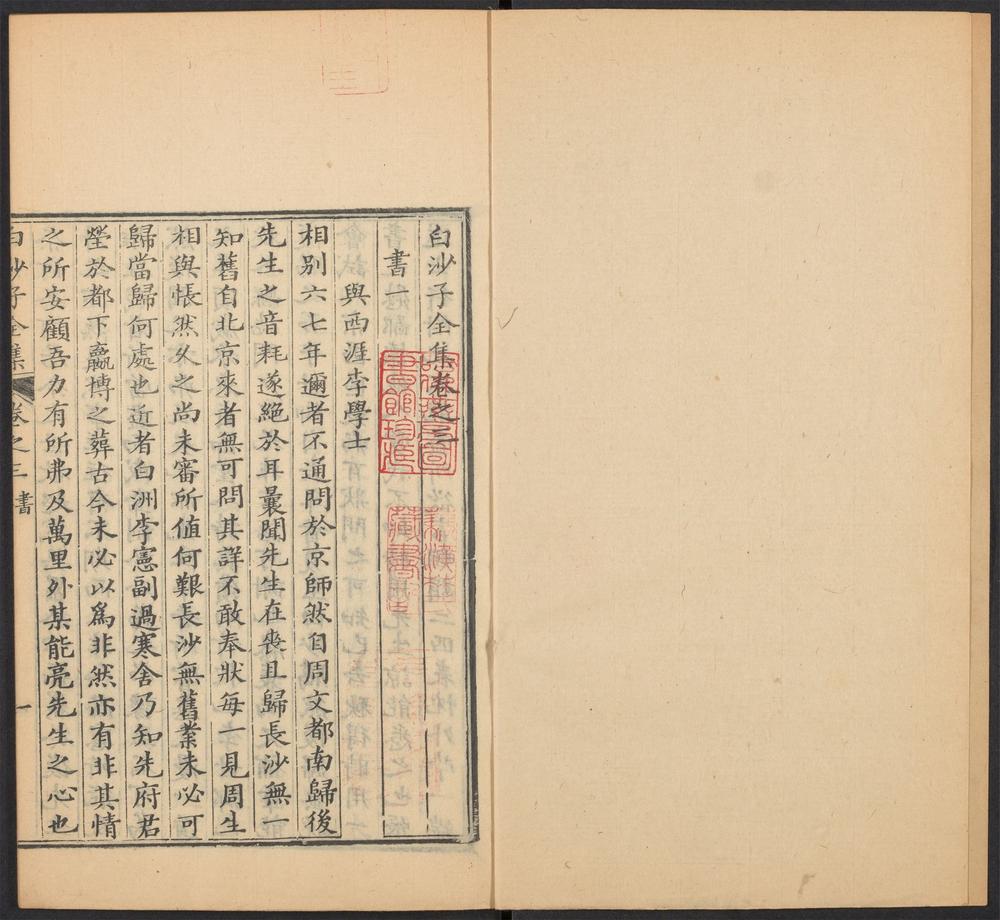 白沙子全集卷之三
書一
與西涯李學士
相别六七年邇者不通問於京師然自周文都南歸後
先生之音耗遂絶於耳曩聞先生在喪且歸長沙無一
知舊自北京來者無可問其詳不敢奉狀每一見周生
相與悵然久之尚未審所値何艱長沙無舊業未必可
歸當歸何處也近者白洲李憲副過寒舍乃知先府君
塋於都下嬴博之葬古今未必以爲非然亦有非其情
之所安顧吾力有所弗及萬里外某能亮先生之心也
白沙子全集
卷之三
書
一